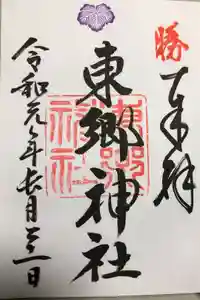 勝
奉拝
東郷神社
東郷神社
令和元年長月三日